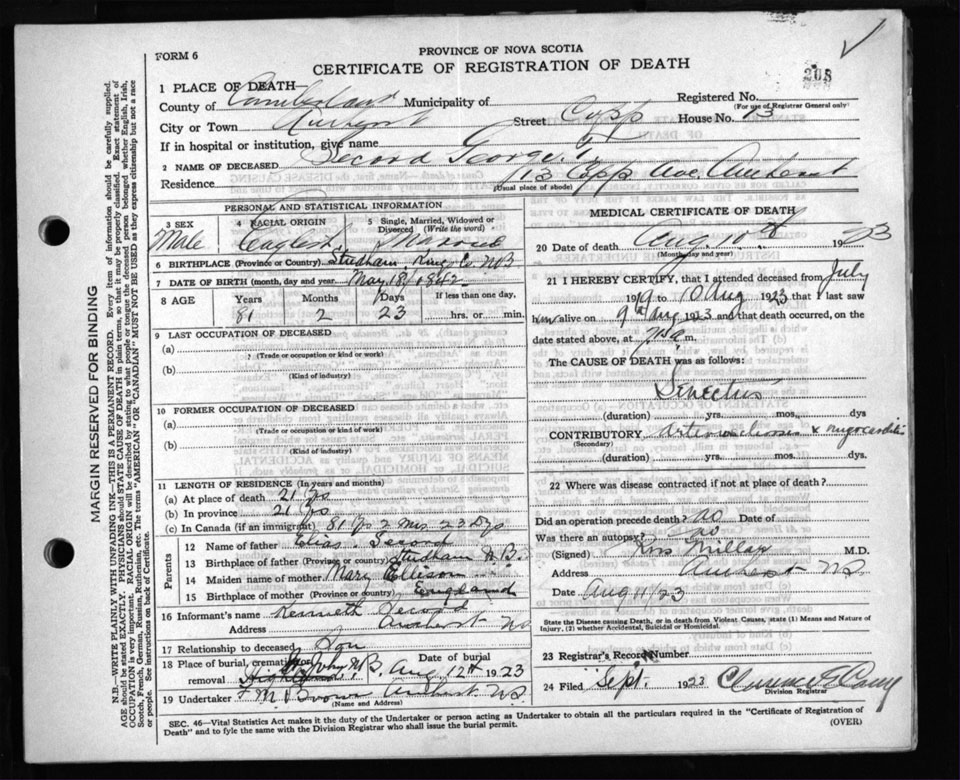 FORM 6
PROVINCE OF NOVA SCOTIA
CERTIFICATE OF REGISTRATION OF DEATH
208
1 PLACE OF DEATH
County of Cumberland Municipality of
Registered No.
(For use of Registrar General only)
City or Town Amherst Street Copp House No. 13
If in hospital or institution, give name
2 NAME OF DECEASED Secord George
Residence 13 Copp Ave Amherst
(Usual place of abode)
PERSONAL AND STATISTICAL INFORMATION
3 SEX Male
4 RACIAL ORIGIN English
5 Single, Married, Widowed or Divorced (Write the word) Married
6 BIRTHPLACE (Province or Country) Studham Kings Co NB
7 DATE OF BIRTH (month, day and year) May 18th 1842
8 AGE Years Months Days If less than one day,
81 2 23 hrs. or min.
9 LAST OCCUPATION OF DECEASED
(a)
(Trade or occupation or kind or work)
(b)
(Kind of industry)
10 FORMER OCCUPATION OF DECEASED
(a)
(Trade or occupation or kind or work)
(b)
(Kind of industry)
11 LENGTH OF RESIDENCE (In years and months)
(a) At place of death 21 yrs
(b) In province 21 yrs
(c) In Canada (if an immigrant) 81 yrs 2 mos 23 Dys
Parents
12 Name of father Elias Secord
13 Birthplace of father (Province or country) Studham N.B.
14 Maiden name of mother Mary
15 Birthplace of mother (Province or country) England
16 Informant's name Kenneth Secord
Address Amherst NS
17 Relationship to deceased Son
18 Place of burial, cremation or removal St John N.B. Date of burial Aug 12th 1923
19 Undertaker F M Brown Amherst NS
(Name and Address)
MEDICAL CERTIFICATE OF DEATH
20 Date of death Aug. 10th 1923
(Month, day and year)
21 I HEREBY CERTIFY, that I attended deceased from July
1919 to 10 Aug 1923 that I last saw
him alive on 9th Aug 1923 and that death occurred, on
date stated above, at m.
The CAUSE OF DEATH was as follows:
Senectus
(duration) yrs. mos. dys
CONTRIBUTORY Arteriosclerosis & myocarditis
(Secondary)
(duration) yrs. mos. dys.
22 Where was disease contracted if not at place of death?
Did an operation precede death? no Date of
Was there an autopsy? no
(Signed) Ross Millar M.D.
Address Amherst NS
Date Aug 11/23
State the Disease causing Death, or in death from Violent Causes, state (1) Means and Nature of Injury, (2) whether Accidental, Suicidal or Homicidal.
23 Registrar's Record Number
24 Filed Sept. 1923
Division Registrar
SEC. 46—Vital Statistics Act makes it the duty of the Undertaker or person acting as Undertaker to obtain all the particulars required in the "Certificate of Registration of
Death" and to fyle the same with the Division Registrar who shall issue the burial permit.
(OVER)
MARGIN RESERVED FOR BINDING
N.B.—WRITE PLAINLY WITH UNFADING INK—THIS IS A PERMANENT RECORD. Every item of information should be carefully supplied.
AGE should be stated EXACTLY. PHYSICIANS should STATE CAUSE OF DEATH in plain terms, so that it may be properly classified. Exact statement of
OCCUPATION is very important. RACIAL ORIGIN will be described by stating to what people or tongue the deceased person belonged whether English, Irish,
Scotch, French, German, Russian, Ruthenian, etc. The terms "AMERICAN" or "CANADIAN" MUST NOT BE USED as they express citizenship but not a race
or people. See instructions on back of Certificate.